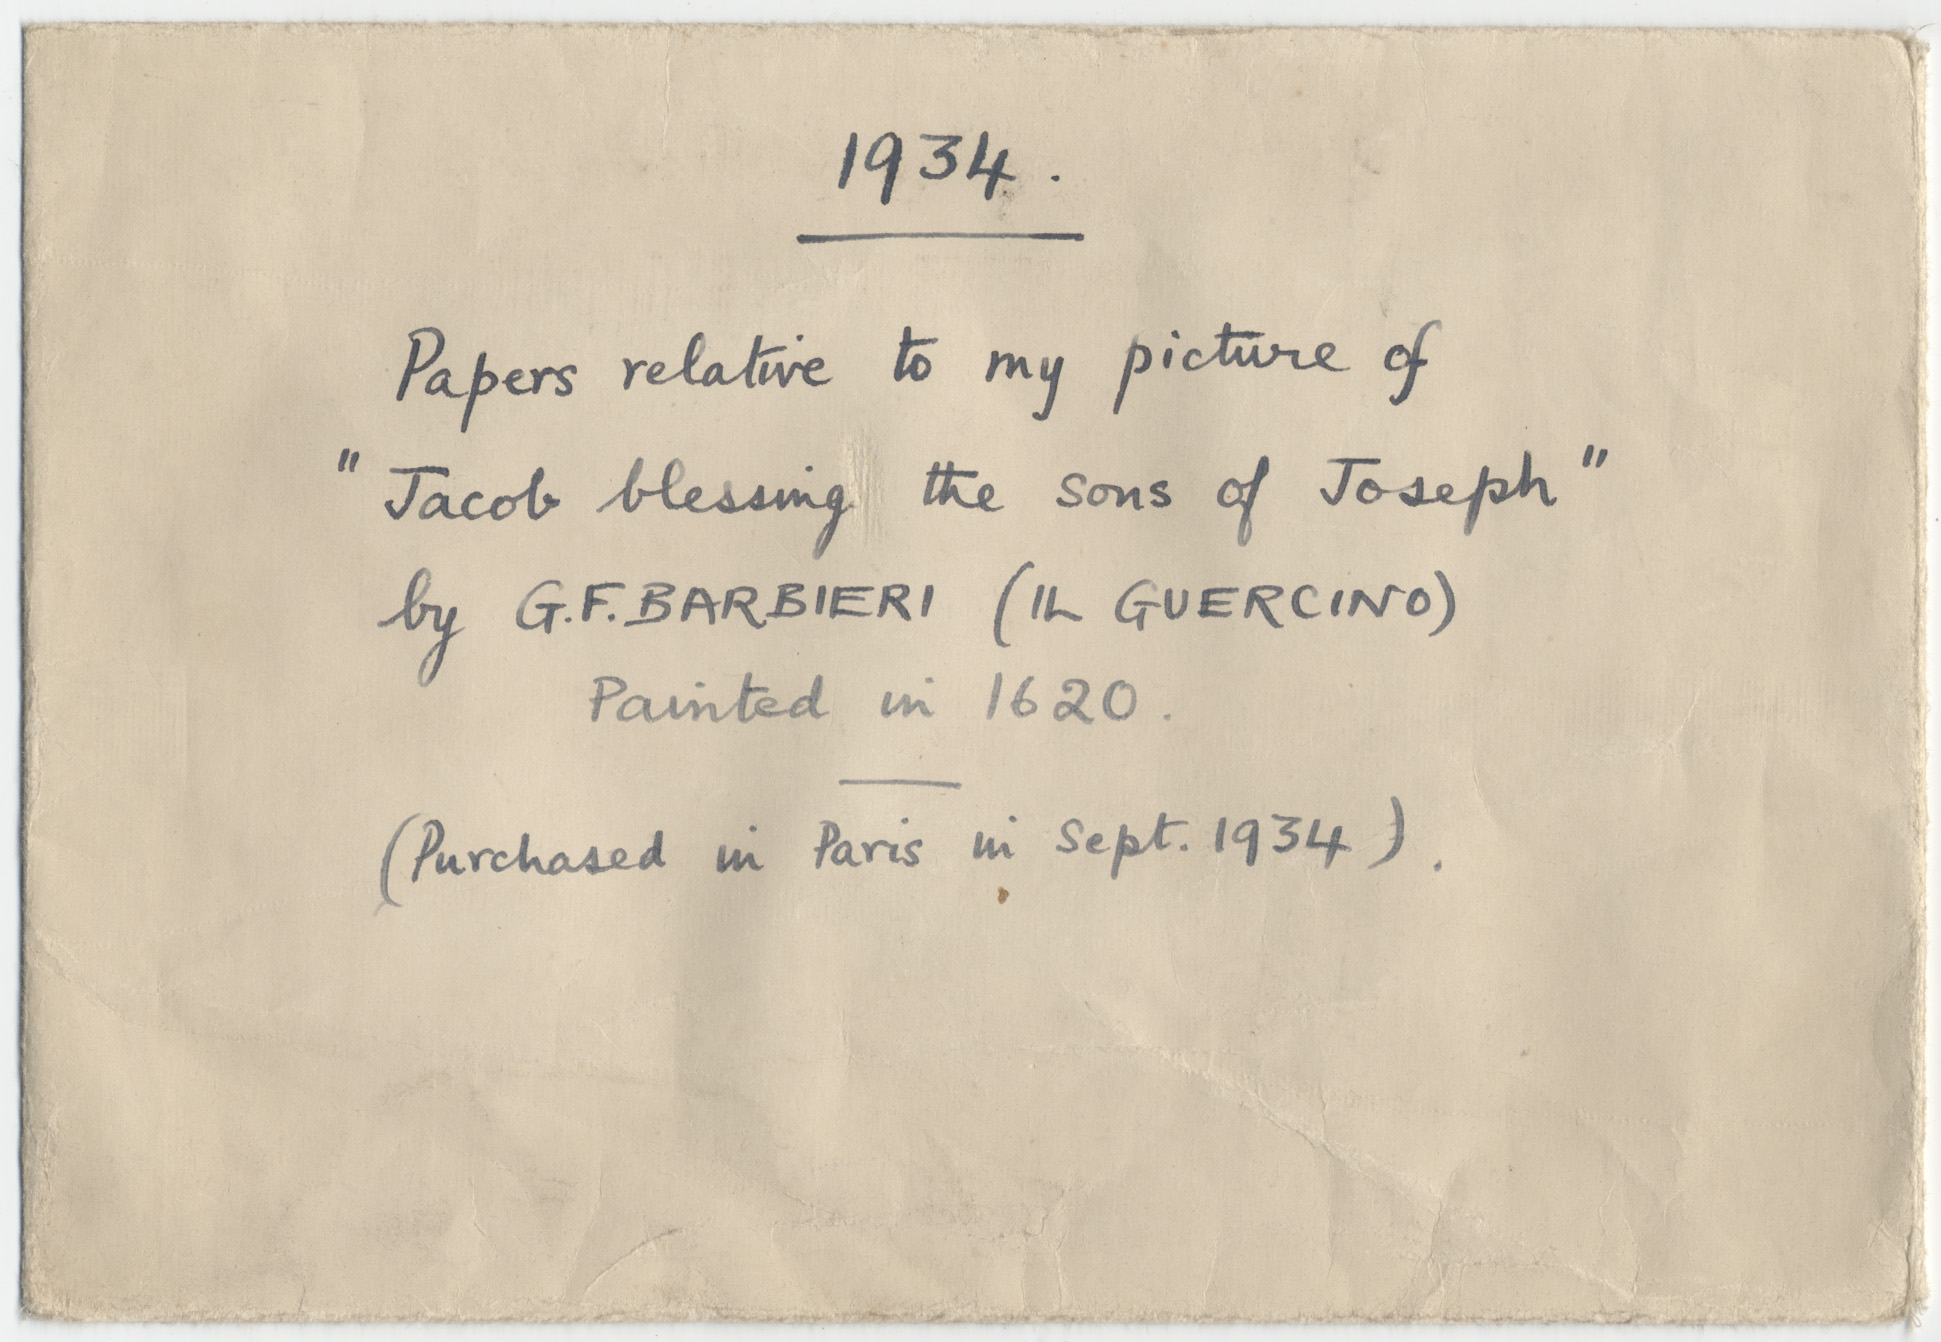 1934.
Papers relative to my picture of
"Jacob blessing the sons of Joseph"
by G.F. BARBIERI (IL GUERCINO)
Painted in 1620.
(Purchased in Paris in Sept. 1934).